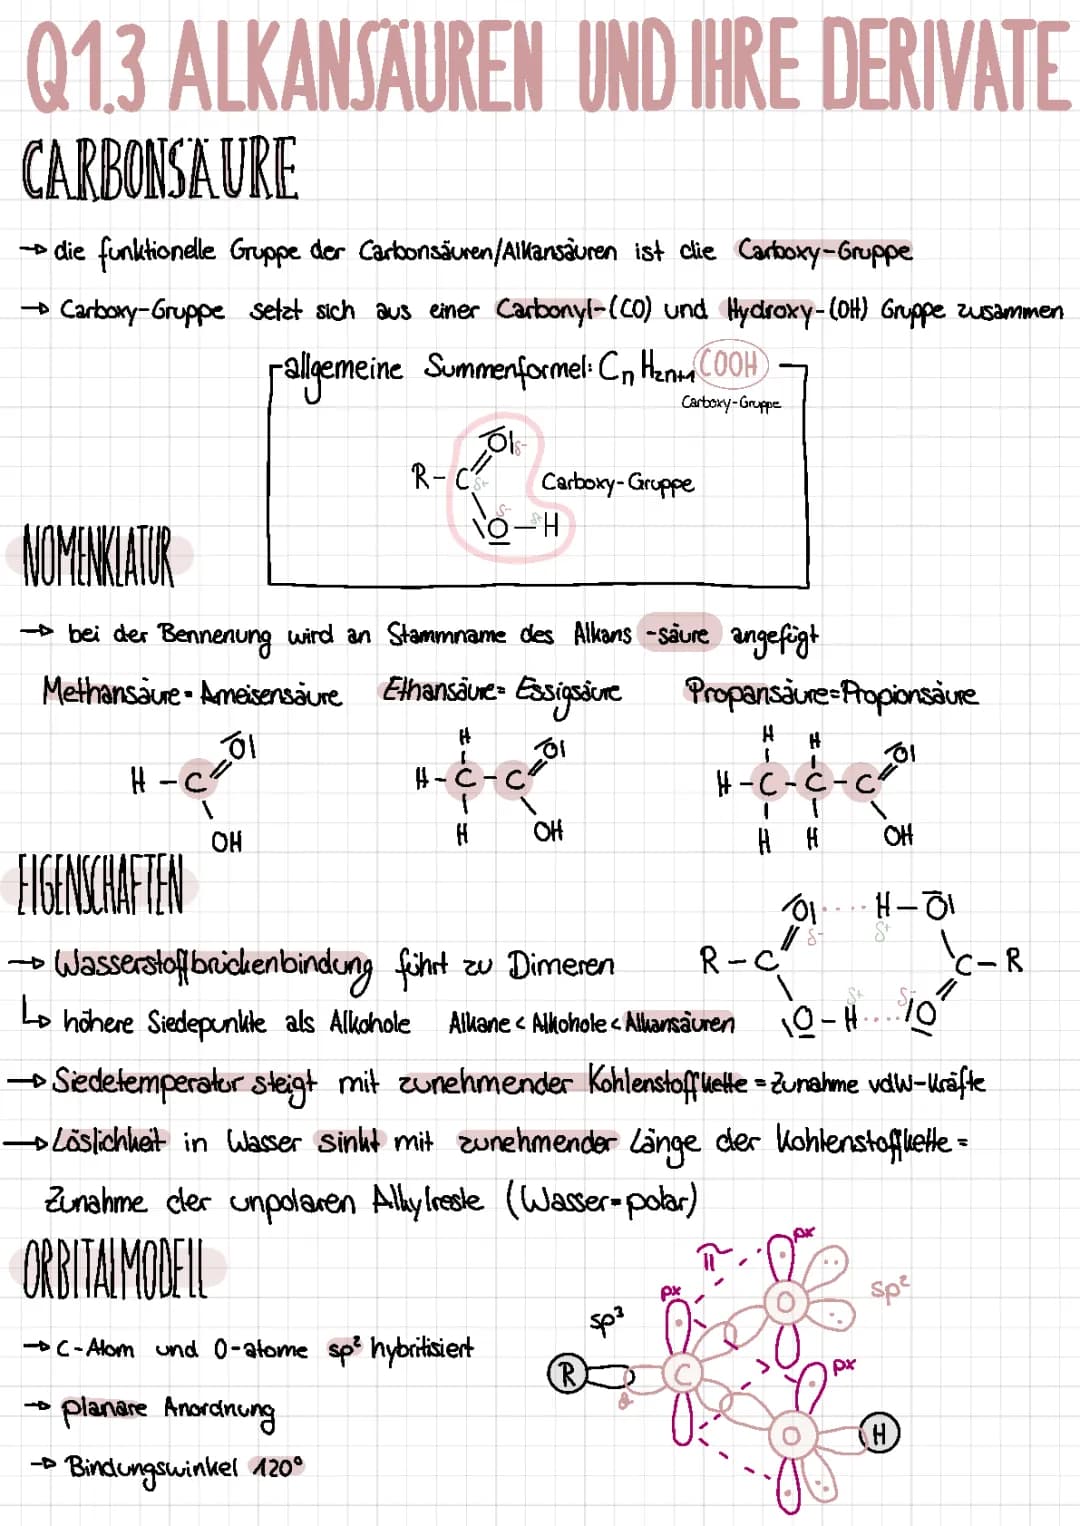 Q1.3 ALKANSÄUREN UND IHRE DERIVATE
CARBONSÄURE
→ die funktionelle Gruppe der Carbonsäuren/Alkansäuren ist die Carboxy-Gruppe
→ Carboxy-Gruppe setzt sich aus einer Carbonyl-(CO) und Hydroxy-(OH) Gruppe zusammen
allgemeine Summenformel: Cn H2n+1 COOH
Carboxy-Gruppe
O δ-
R-C δ+ Carboxy-Gruppe
δ- δ+
O-H
NOMENKLATUR
→ bei der Bennenung wird an Stammname des Alkans -säure angefügt
Methansäure = Ameisensäure Ethansäure = Essigsäure Propansäure = Propionsäure
H H H
O O O
H-C H-C-C H-C-C-C
OH H OH H H OH
EIGENSCHAFTEN
O .... H-O
δ- δ+
→ Wasserstoffbrückenbindung führt zu Dimeren R-C C-R
δ+ δ-
↳ höhere Siedepunkte als Alkohole Alkane < Alkohole < Alkansäuren O-H....O
→ Siedetemperatur steigt mit zunehmender Kohlenstoffkette = Zunahme vdW-Kräfte
→ Löslichkeit in Wasser sinkt mit zunehmender Länge der Kohlenstoffkette =
Zunahme der unpolaren Alkylreste (Wasser = polar)
ORBITALMODELL
px
π
px O sp²
sp³
→ C-Atom und O-atome sp² hybritisiert
R C px
→ planare Anordnung
O H
→ Bindungswinkel 120°